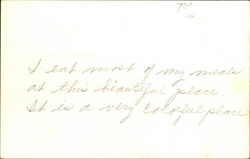 I eat most of my meals
at this beautiful place.
It is a very colorful place